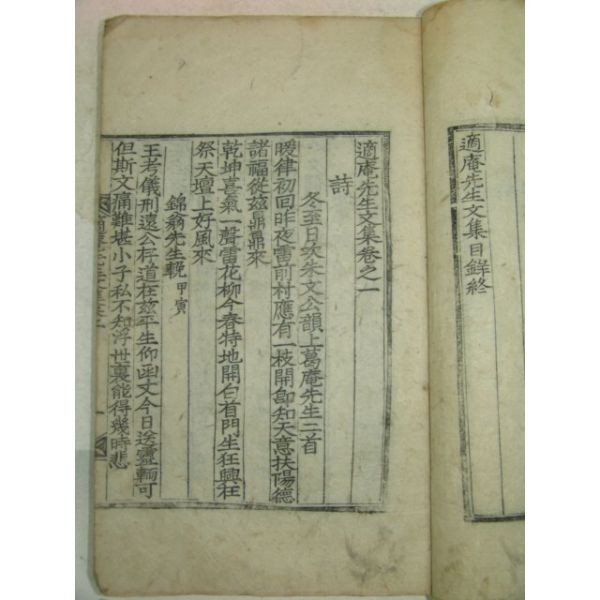 適庵先生文集目錄終
適庵先生文集卷之一
詩
冬至日次朱文公韻上葛庵先生二首
暖律初回昨夜雷前村應有一枝開卽知天意扶陽德
諸福從玆鼎鼎來
乾坤喜氣一聲雷花柳今春特地開白首門生狂興在
祭天壇上好風來
錦翁先生輓 甲寅
王考儀刑遠公存道在玆平生仰函丈今日送靈輀可
但斯文痛難堪小子私不知浮世裏能得幾時悲